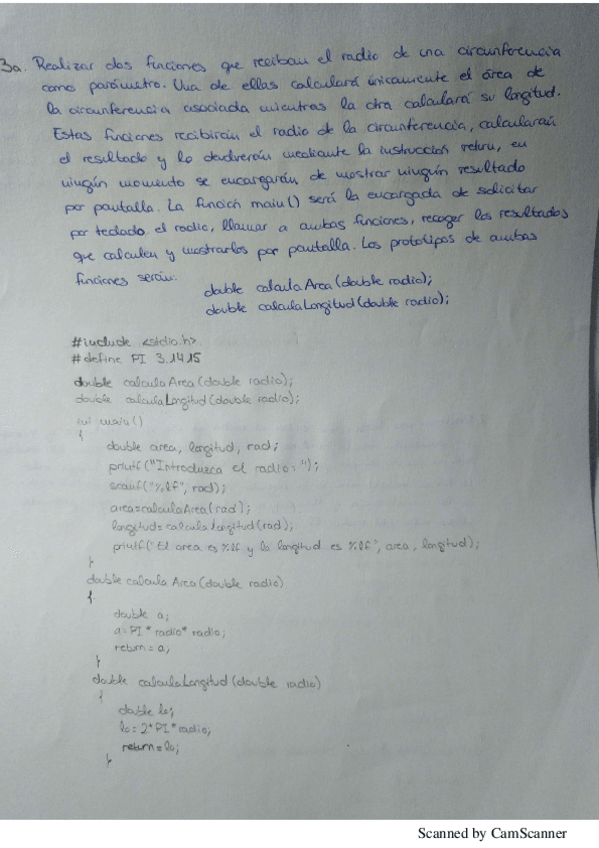 3a. Realizar dos funciones que reciban el radio de una circunferencia
como parámetro. Una de ellas calculará únicamente el área de
la circunferencia asociada mientras la otra calculará su longitud.
Estas funciones recibirán el radio de la circunferencia, calcularán
el resultado y lo devolverán mediante la instrucción return, en
ningún momento se encargarán de mostrar ningún resultado
por pantalla. La función main() será la encargada de solicitar
por teclado el radio, llamar a ambas funciones, recoger los resultados
que calculen y mostrarlos por pantalla. Los prototipos de ambas
funciones serán:
double calculaArea(double radio);
double calculaLongitud(double radio);
#include <stdio.h>
#define PI 3.1415
double calculaArea(double radio);
double calculaLongitud(double radio);
int main()
{
double area, longitud, rad;
printf("Introduzca el radio: ");
scanf("%lf", rad);
area=calculaArea(rad);
longitud=calculaLongitud(rad);
printf("El area es %lf y la longitud es %lf", area, longitud);
}
double calculaArea(double radio)
{
double a;
a=PI*radio*radio;
return=a;
}
double calculaLongitud(double radio)
{
double lo;
lo=2*PI*radio;
return=lo;
}
Scanned by CamScanner